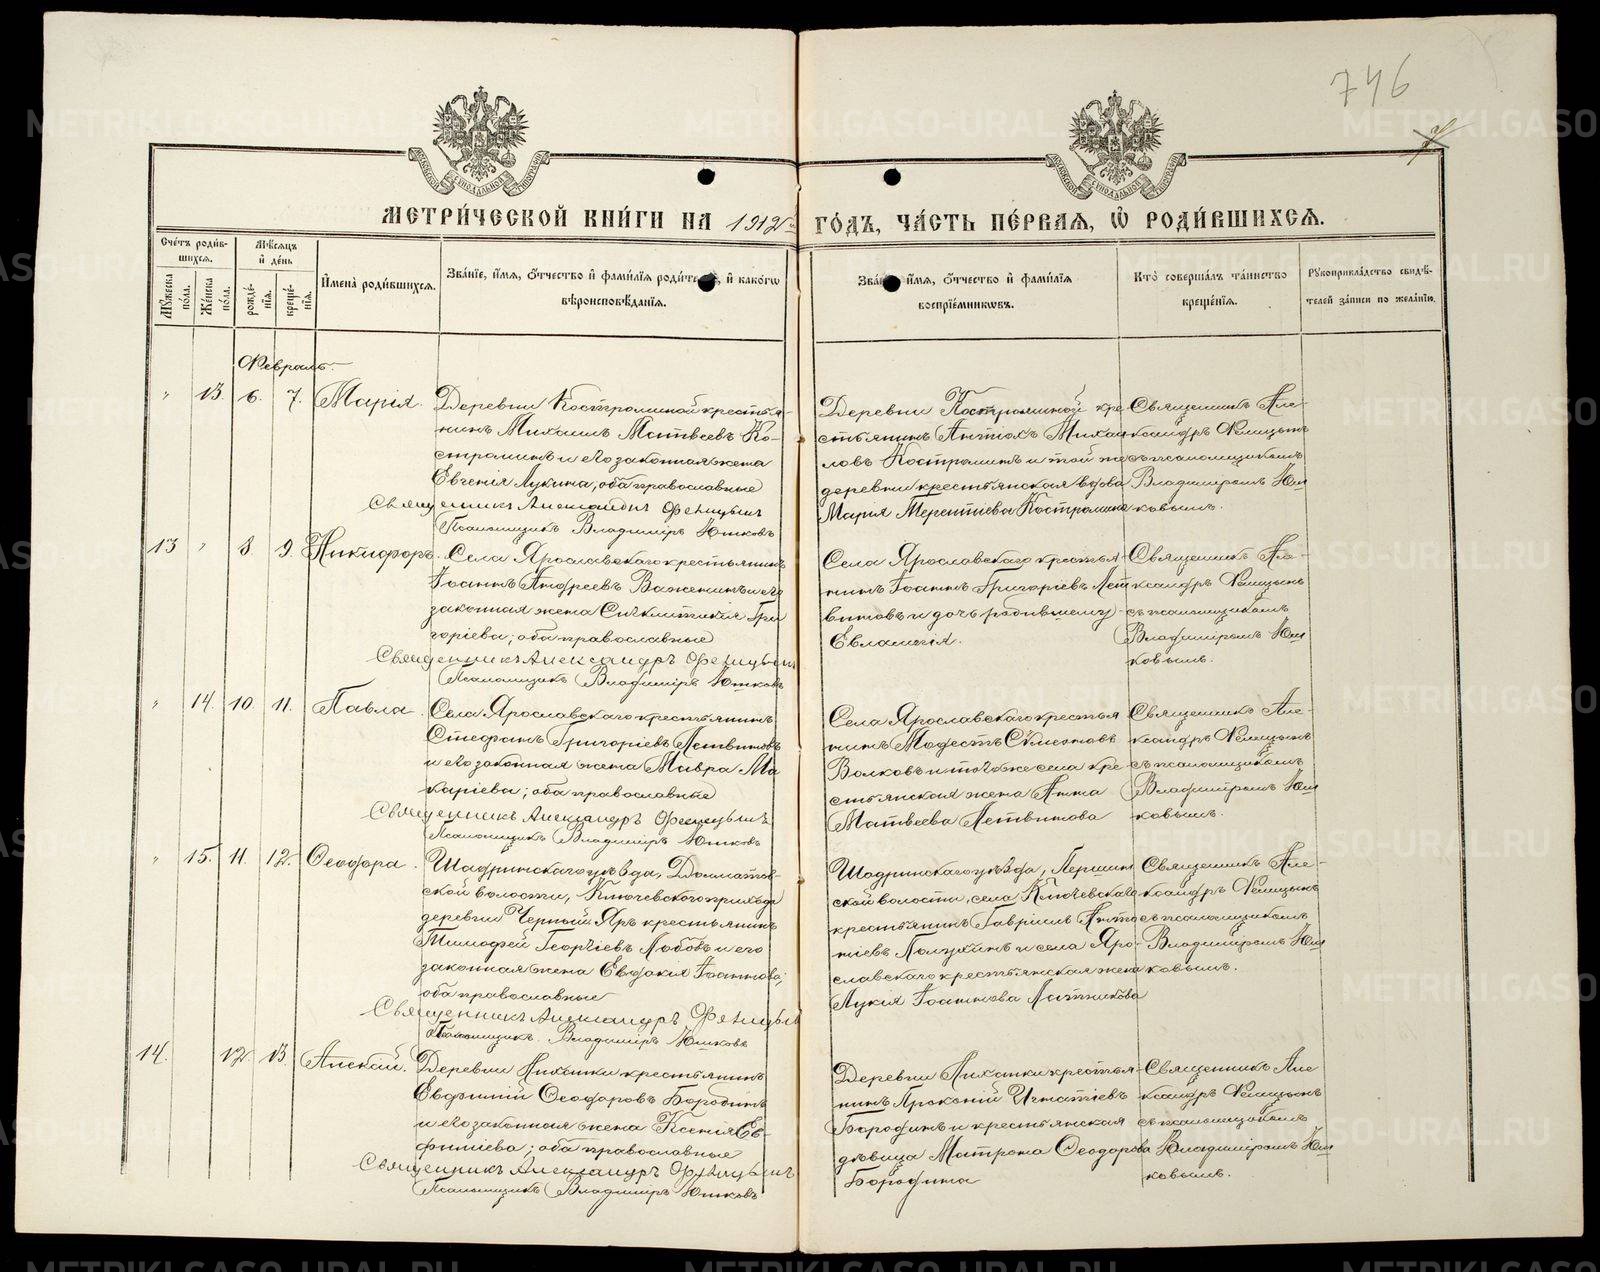 746
МЕТРИ́ЧЕСКОЙ КНИ́ГИ НА 1912й ГО́ДЪ, ЧА́СТЬ ПЕ́РВАЯ, Ѡ҆ РОДИ́ВШИХСЯ.
Сче́тъ роди́вшихся.
Мꙋ́жеска по́ла.
Же́нска по́ла.
Мѣ́сяцъ и҆ де́нь
рожде́нїя.
креще́нїя.
И҆мена̀ роди́вшихся.
Зва́нїе, и҆́мя, ѻ҆́тчество и҆ фами́лїя роди́телей, и҆ како́гѡ
вѣроисповѣ́данїя.
Зва́нїе, и҆́мя, ѻ҆́тчество и҆ фами́лїя
воспрїе́мникѡвъ.
Кто̀ соверша́лъ та́инство
креще́нїя.
Рꙋкоприкла́дство свидѣ́-
телей за́писи по жела́нїю.
Февраль.
" 13. 6. 7. Марія.
Деревни Костроминой крестья-
нинъ Михаилъ Матвеевъ Ко-
строминъ и его законная жена
Евгенія Лукина, оба православные
Священникъ Александръ Феницынъ
Псаломщикъ Владиміръ Юшковъ
Деревни Костроминой кре
стьянинъ Антіохъ Михаи
ловъ Костроминъ и той же
деревни крестьянская вдова
Марія Терентіева Костромина
Священникъ Але-
ксандръ Феницынъ
съ псаломщикомъ
Владиміромъ Юш
ковымъ.
13 " 8. 9. Никифоръ.
Села Ярославскаго крестьянинъ
Іоаннъ Андреевъ Важенинъ и его
законная жена Синклитикія Гри
горіева; оба православные
Священникъ Александръ Феницынъ
Псаломщикъ Владиміръ Юшковъ
Села Ярославскаго крестья-
нинъ Іоаннъ Григоріевъ Лет
виновъ и дочь родившему
Евлампія.
Священникъ Але-
ксандръ Феницынъ
съ псаломщикомъ
Владиміромъ Юш
ковымъ.
" 14. 10. 11. Павла.
Села Ярославскаго крестьянинъ
Стефанъ Григоріевъ Летвиновъ
и его законная жена Мавра Ма
каріева; оба православные
Священникъ Александръ Феницынъ
Псаломщикъ Владиміръ Юшковъ
Села Ярославскаго крестья
нинъ Модестъ
Волковъ и того же села кре
стьянская жена Анна
Матвеева Летвинова
Священникъ Але-
ксандръ Феницынъ
съ псаломщикомъ
Владиміромъ Юш
ковымъ.
" 15. 11. 12. Феодора.
Шадринскаго уѣзда, Долматов-
ской волости, Ключевского прихода
деревни Черный Яръ крестьянинъ
Тимофей Георгіевъ Лобовъ и его
законная жена Евдокія Іоаннова;
оба православные
Священникъ Александръ Феницынъ
Псаломщикъ Владиміръ Юшковъ
Шадринскаго уѣзда, Першин
ской волости, села Ключевскаго
крестьянинъ Гавріилъ Анто
ніевъ Полухинъ и села Яро-
славскаго крестьянская жена
Лукія Іоаннова
Священникъ Але-
ксандръ Феницынъ
съ псаломщикомъ
Владиміромъ Юш
ковымъ.
14. 12. 13. Алексій.
Деревни крестьянинъ
Евфимій Феодоровъ Бородинъ
и его законная жена Ксенія Ев-
фиміева; оба православные
Священникъ Александръ Феницынъ
Псаломщикъ Владиміръ Юшковъ
Деревни крестья-
нинъ Прокопій Игнатіевъ
Бородинъ и крестьянская
дѣвица Матрона Феодорова
Бородина
Священникъ Але
ксандръ Феницынъ
съ псаломщикомъ
Владиміромъ Юш
ковымъ.
METRIKI.GASO-URAL.RU